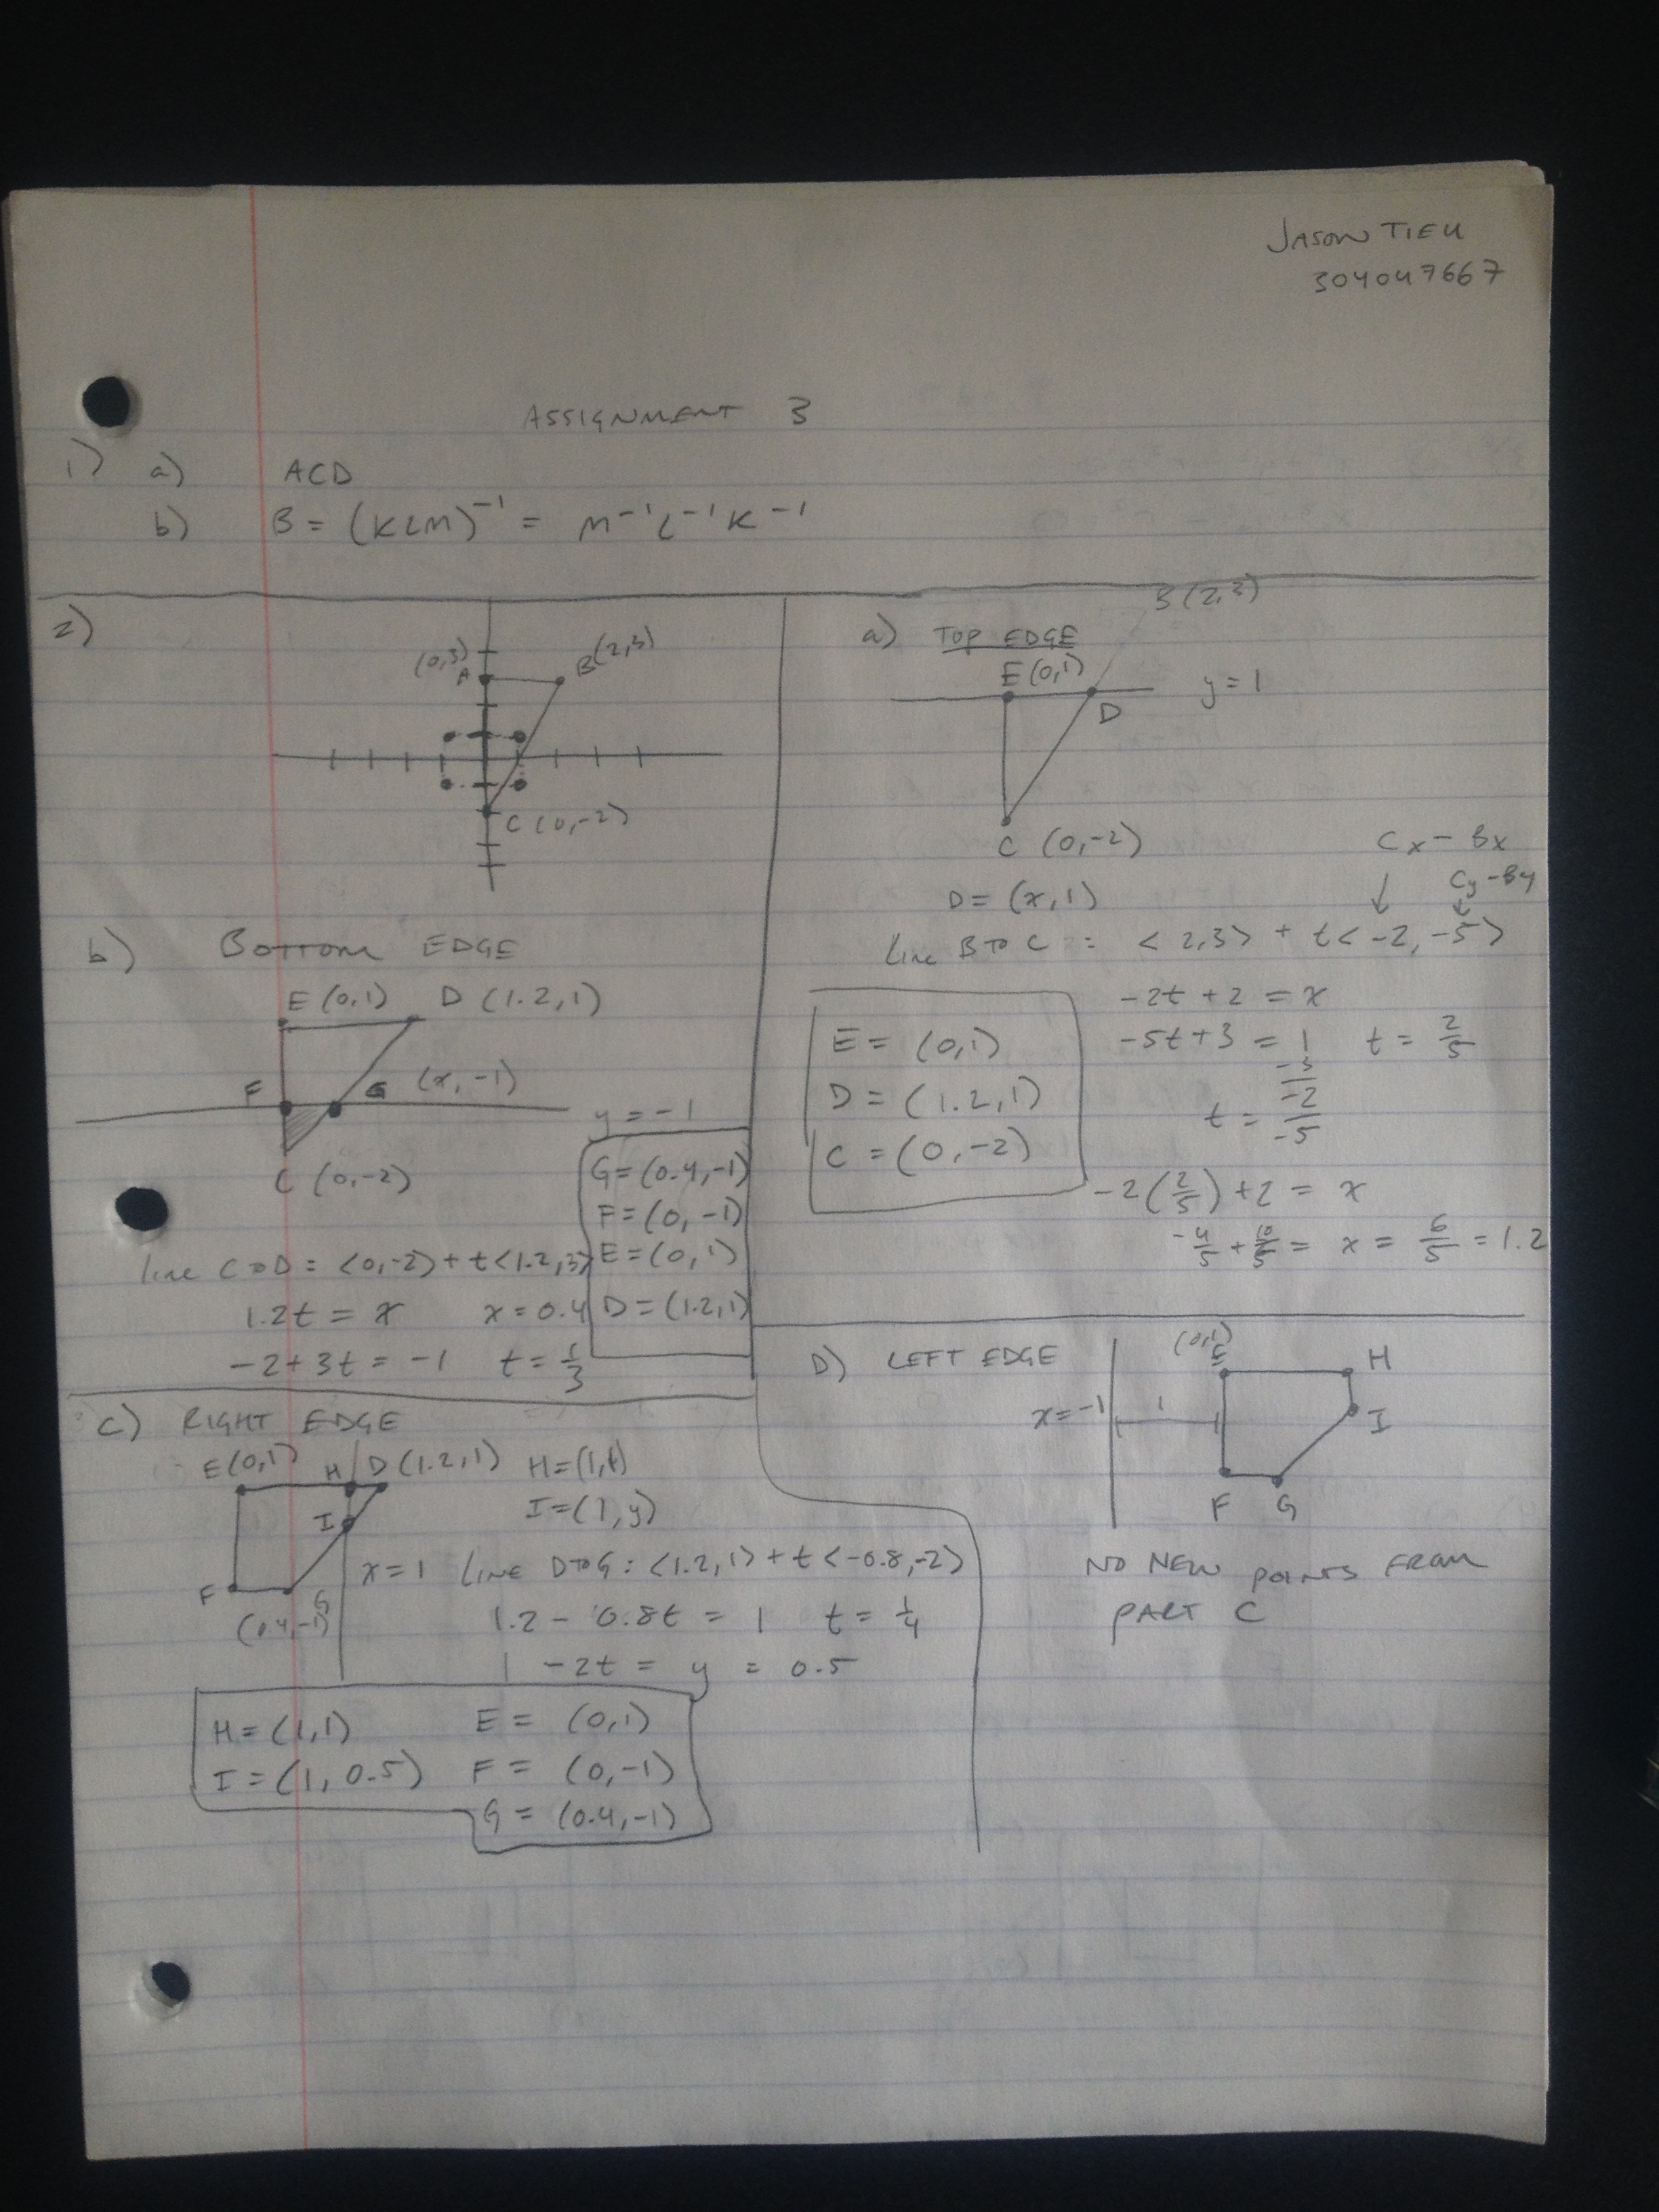 JASON TIEU
304047667
ASSIGNMENT 3
1) a) ACD
b) B = (KLM)⁻¹ = M⁻¹L⁻¹K⁻¹
2)
(0,3)
A
B(2,3)
C (0,-2)
a) TOP EDGE
B(2,3)
E(0,1)
y=1
D
C (0,-2)
Cx - Bx
Cy - By
D = (x,1)
Line B to C : <2,3> + t<-2,-5>
-2t + 2 = x
-5t+3 = 1 t = 2/5
-3
t = -2/-5
-2(2/5) + 2 = x
-4/5 + 10/5 = x = 6/5 = 1.2
E = (0,1)
D = (1.2,1)
C = (0,-2)
b) BOTTOM EDGE
E(0,1) D(1.2,1)
F G (x,-1)
y = -1
C (0,-2)
line C to D : <0,-2> + t<1.2,3>
1.2t = x x = 0.4
-2+3t = -1 t = 1/3
G = (0.4,-1)
F = (0,-1)
E = (0,1)
D = (1.2,1)
c) RIGHT EDGE
E(0,1) H D(1.2,1) H=(1,1)
I I=(1,y)
x=1 LINE D to G : <1.2,1> + t<-0.8,-2>
F G
(0.4,-1)
1.2 - 0.8t = 1 t = 1/4
1 - 2t = y = 0.5
H = (1,1) E = (0,1)
I = (1, 0.5) F = (0,-1)
G = (0.4,-1)
D) LEFT EDGE
(0,1)
E
H
x=-1
1
I
F G
NO NEW POINTS FROM
PART C